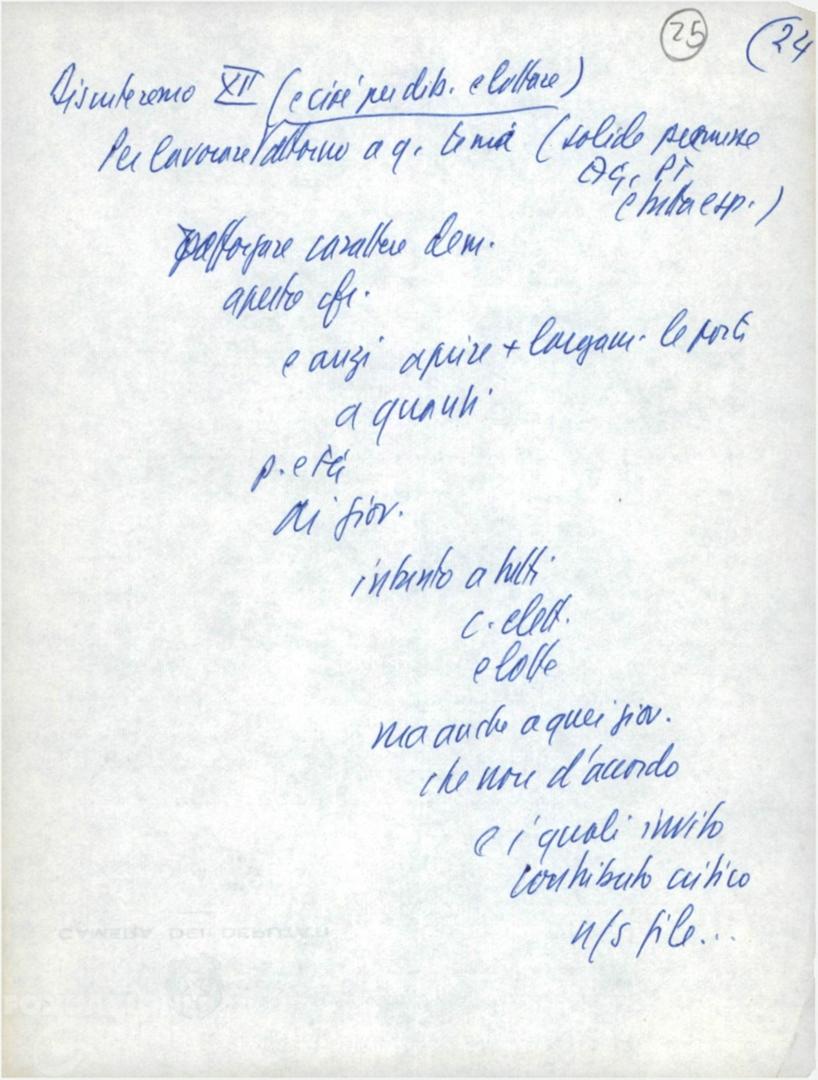 25 (24
Discuteremo XII (e cioè per dib. e lottare)
Per lavorare attorno a q. temi (solide premesse
OG, PT
e tutta esp.)
rafforzare carattere dem.
aperto
e anzi aprire + largam. le porte
a quanti
p. età
ai giov.
intanto a tutti
c. elett.
e lotte
ma anche a quei giov.
che non d'accordo
e i quali invito
contributo critico
n/s file...
CAMERA DEI DEPUTATI